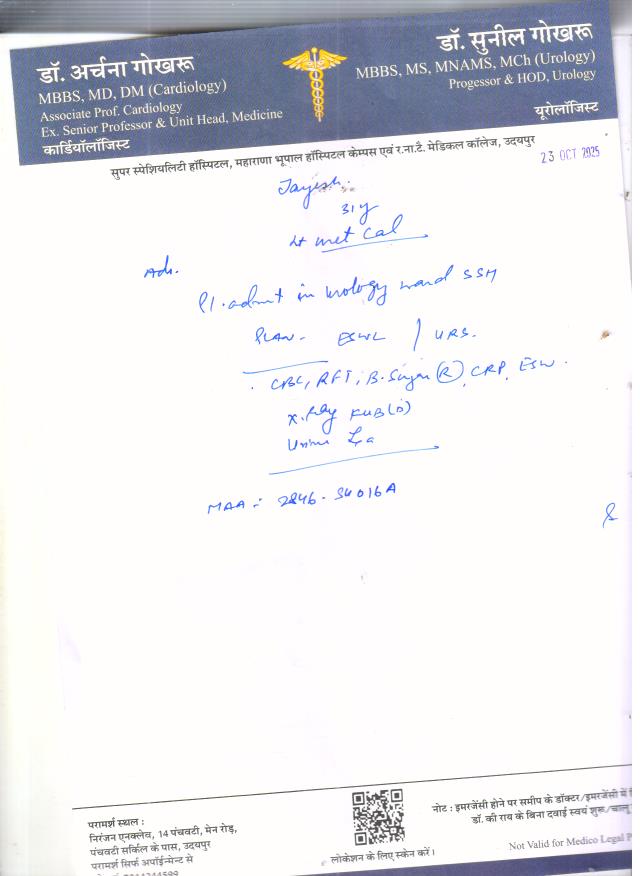 डॉ. अर्चना गोखरू
MBBS, MD, DM (Cardiology)
Associate Prof. Cardiology
Ex. Senior Professor & Unit Head, Medicine
कार्डियॉलॉजिस्ट
डॉ. सुनील गोखरू
MBBS, MS, MNAMS, MCh (Urology)
Progessor & HOD, Urology
यूरोलॉजिस्ट
सुपर स्पेशियलिटी हॉस्पिटल, महाराणा भूपाल हॉस्पिटल केम्पस एवं र.ना.टै. मेडिकल कॉलेज, उदयपुर
23 OCT 2025
Jayesh.
31y
Lt met cal
Adv.
Pl. admit in Urology ward SSH
PLAN - ESWL / URS.
CBC, RFT, B. Sugar (R), CRP, ESW.
X. Ray KUB (D)
Urine
MAA :- 2846-34016A
परामर्श स्थल :
निरंजन एनक्लेव, 14 पंचवटी, मेन रोड़,
पंचवटी सर्किल के पास, उदयपुर
परामर्श सिर्फ अपॉईन्मेन्ट से
लोकेशन के लिए स्केन करें।
नोट : इमरजेंसी होने पर समीप के डॉक्टर/इमरजेंसी में
डॉ. की राय के बिना दवाई स्वयं शुरू/चालू
Not Valid for Medico Legal P